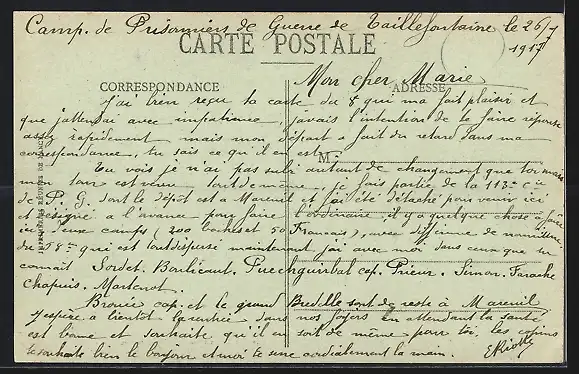 Camp. de Prisonniers de Guerre de Taillefontaine le 26/7
1917
CARTE POSTALE
Mon cher Marie
CORRESPONDANCE
ADRESSE
J'ai bien reçu ta carte du 8 qui ma fait plaisir et
que j'attendai avec impatience, j'avais l'intention de te faire réponse
assez rapidement mais mon départ a fait du retard dans ma
correspondance, tu sais ce qu'il en est.
M
Tu vois je n'ai pas subi autant de changement que toi mais
mon tour est venu tout de même, je fais partie de la 113e Cie
de P. G. dont le dépôt est a Mareuil et j'ai été détaché pour venir ici
et désigné a l'avance pour faire l'ordinaire il y a quelque chose à faire
ici deux camps (200 boches et 50 Français), avec
du 58e qui est tout dispersé maintenant j'ai avec moi dans ceux que tu
connaît Sordet. Puechguirbal cap. Prieur. Simon.
Chapuis.
cap. et le grand Bredelle sont de reste à Mareuil
J'espère a bientôt dans nos foyers En attendant la santé
est bonne et souhaite qu'il en soit de même pour toi, les copins
te souhaite bien le bonjour et moi te serre cordialement la main.